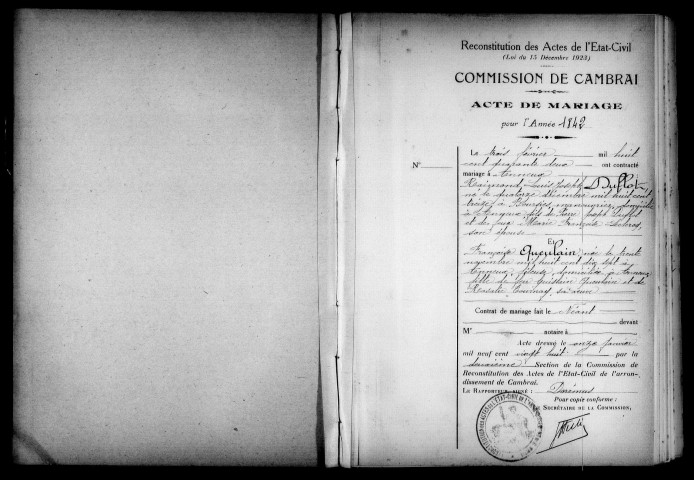 Reconstitution des Actes de l'Etat-Civil
(Loi du 15 Décembre 1923)
COMMISSION DE CAMBRAI
ACTE DE MARIAGE
pour l'Année 1842
Le trois février mil huit
cent quarante deux ont contracté
N°
mariage à Anneux
Raimond Louis Joseph Duflot
né le quatorze décembre mil huit cent
treize à Boursies, domicilié
à fils de Pierre Joseph Duflot
et de feue Marie Françoise
son épouse
Et
Françoise Queulain, née le trente
novembre mil huit cent dix sept à
Anneux, fileuse, domiciliée à Anneux
fille de feu Guislain Queulain et de
Rosalie sa veuve
Contrat de mariage fait le Néant
devant
Me notaire à
Acte dressé le onze janvier
mil neuf cent vingt huit par la
deuxième Section de la Commission de
Reconstitution des Actes de l'Etat-Civil de l'arron-
dissement de Cambrai.
LE RAPPORTEUR, SIGNÉ :
Pour copie conforme :
LE SECRÉTAIRE DE LA COMMISSION,